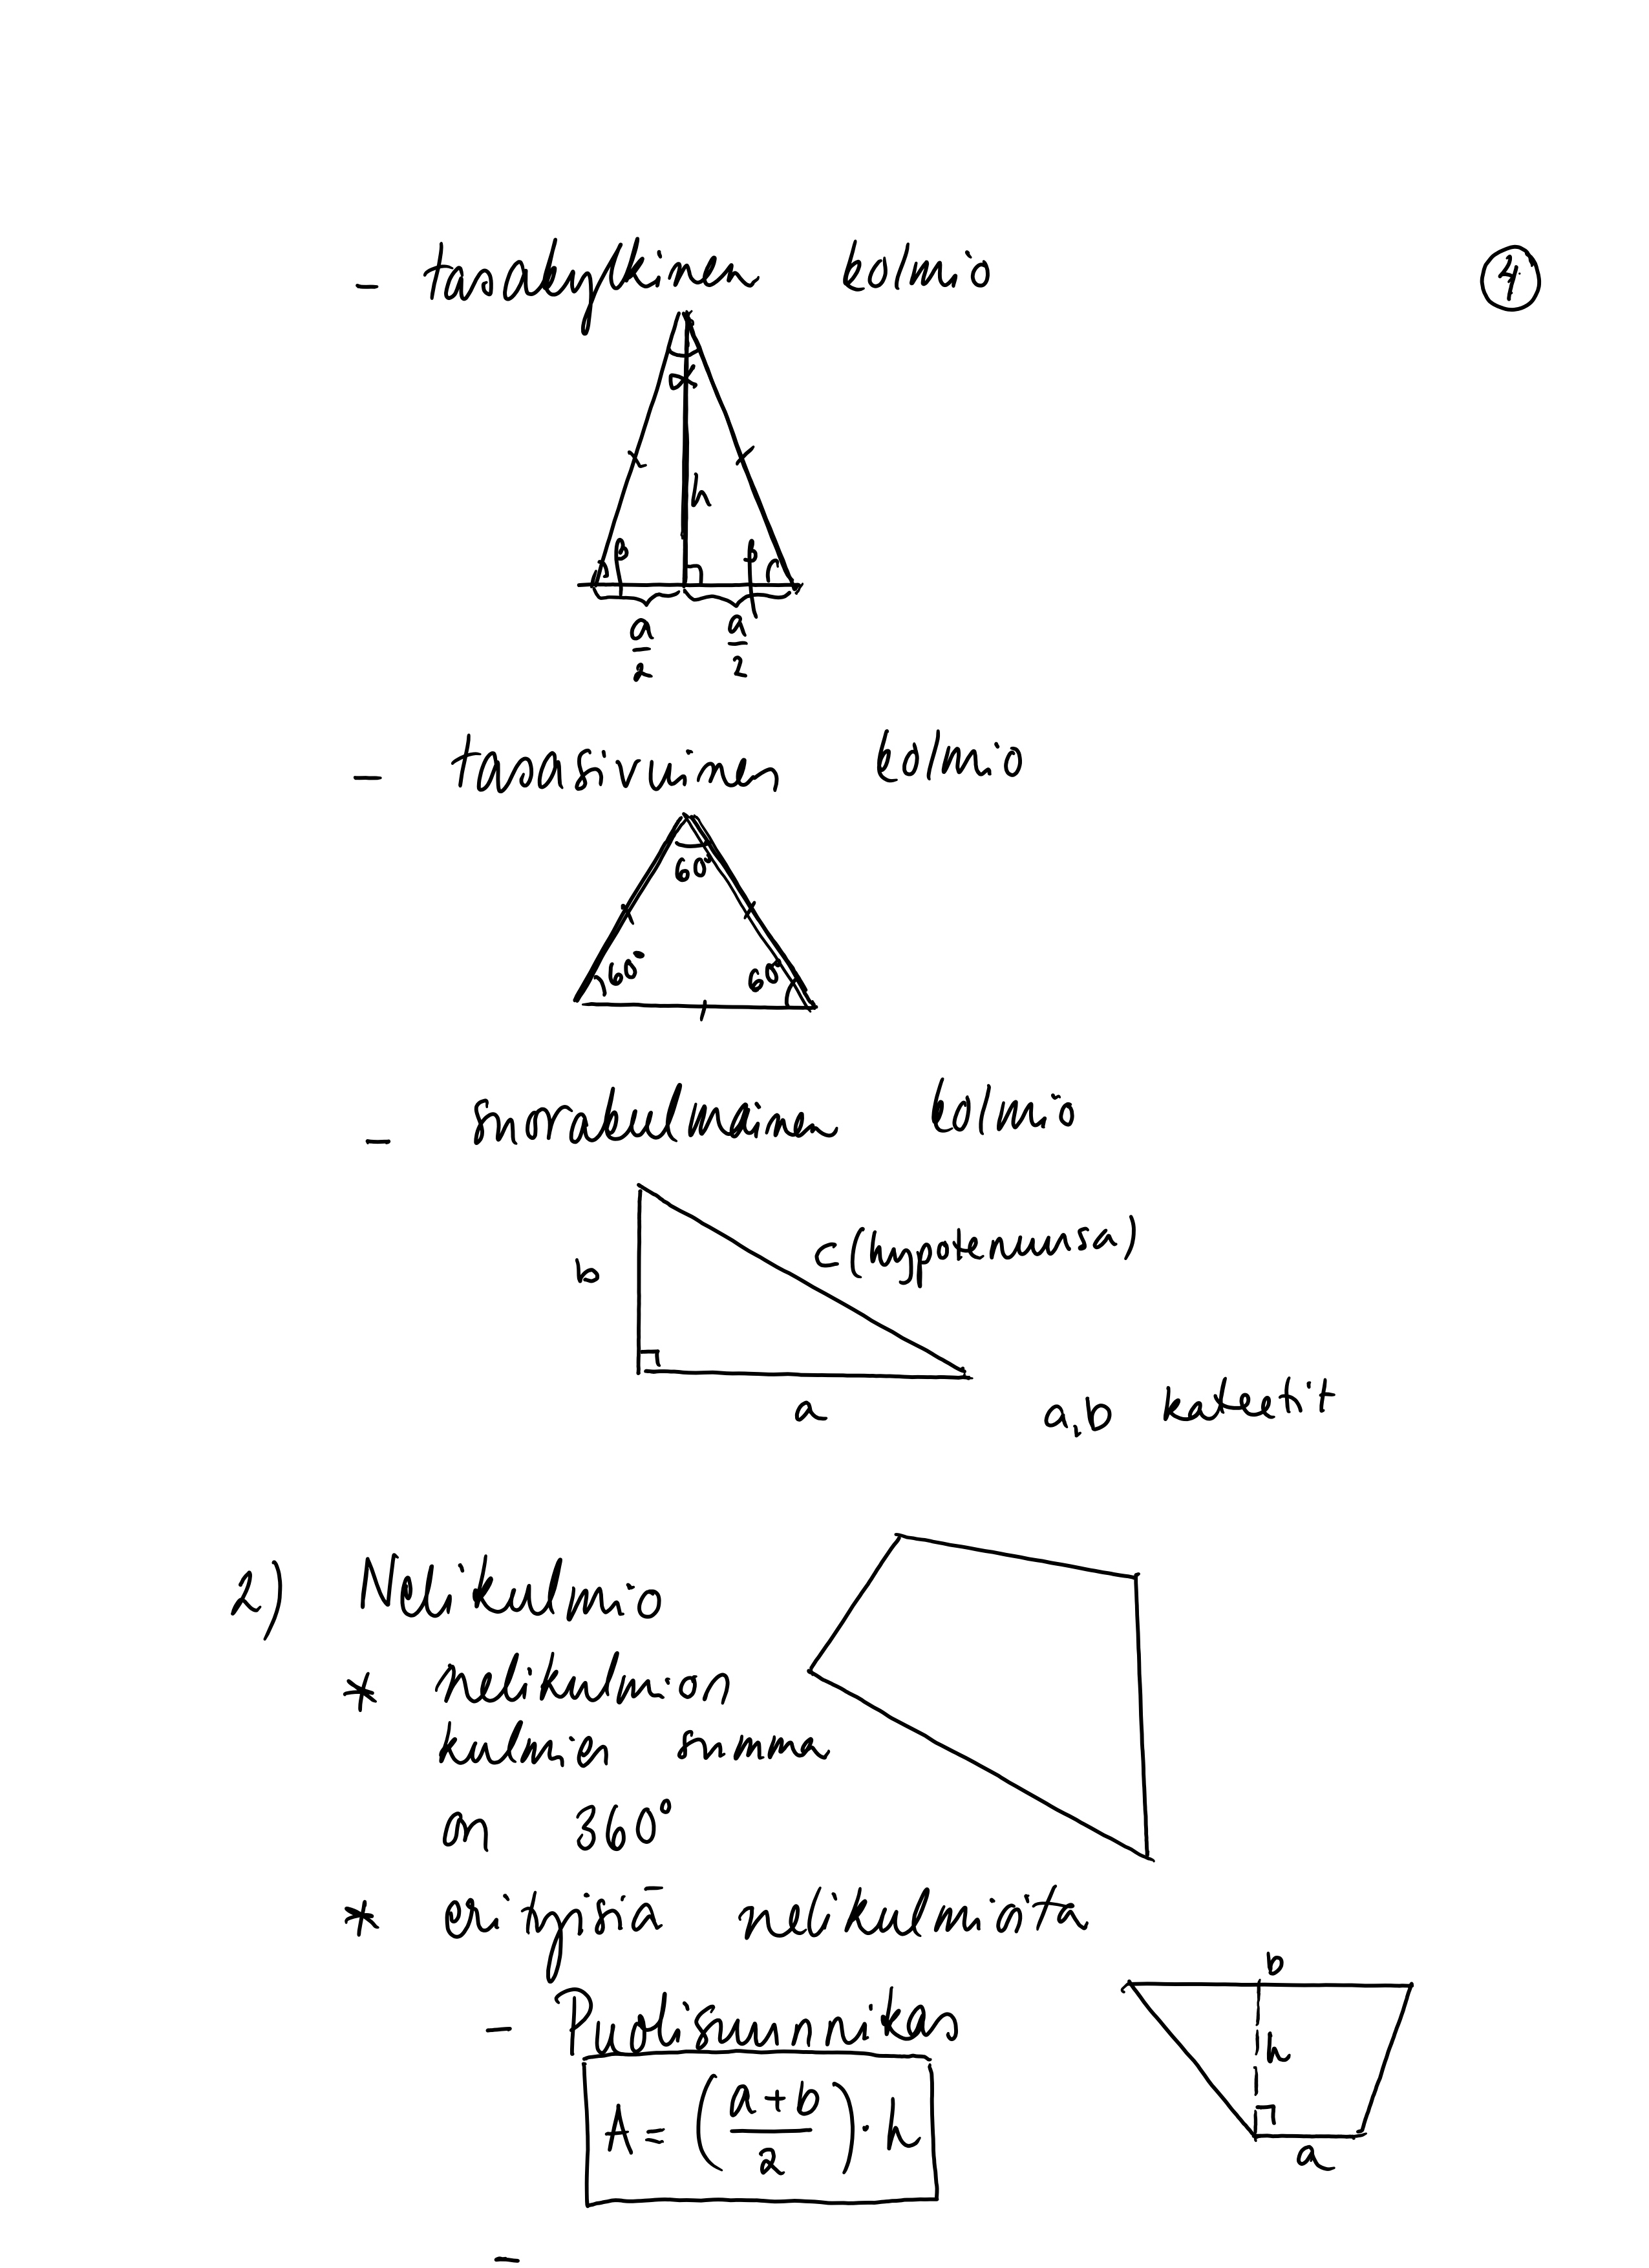 - tasakylkinen kolmio
4
α
h
β β
a/2 a/2
- tasasivuinen kolmio
60°
60° 60°
- suorakulmainen kolmio
c (hypotenuusa)
b
a
a,b kateetit
2) Nelikulmio
* nelikulmion
kulmien summa
on 360°
* erityisiä nelikulmioita
b
- Puolisuunnikas
h
A = (a+b/2) · h
a
-